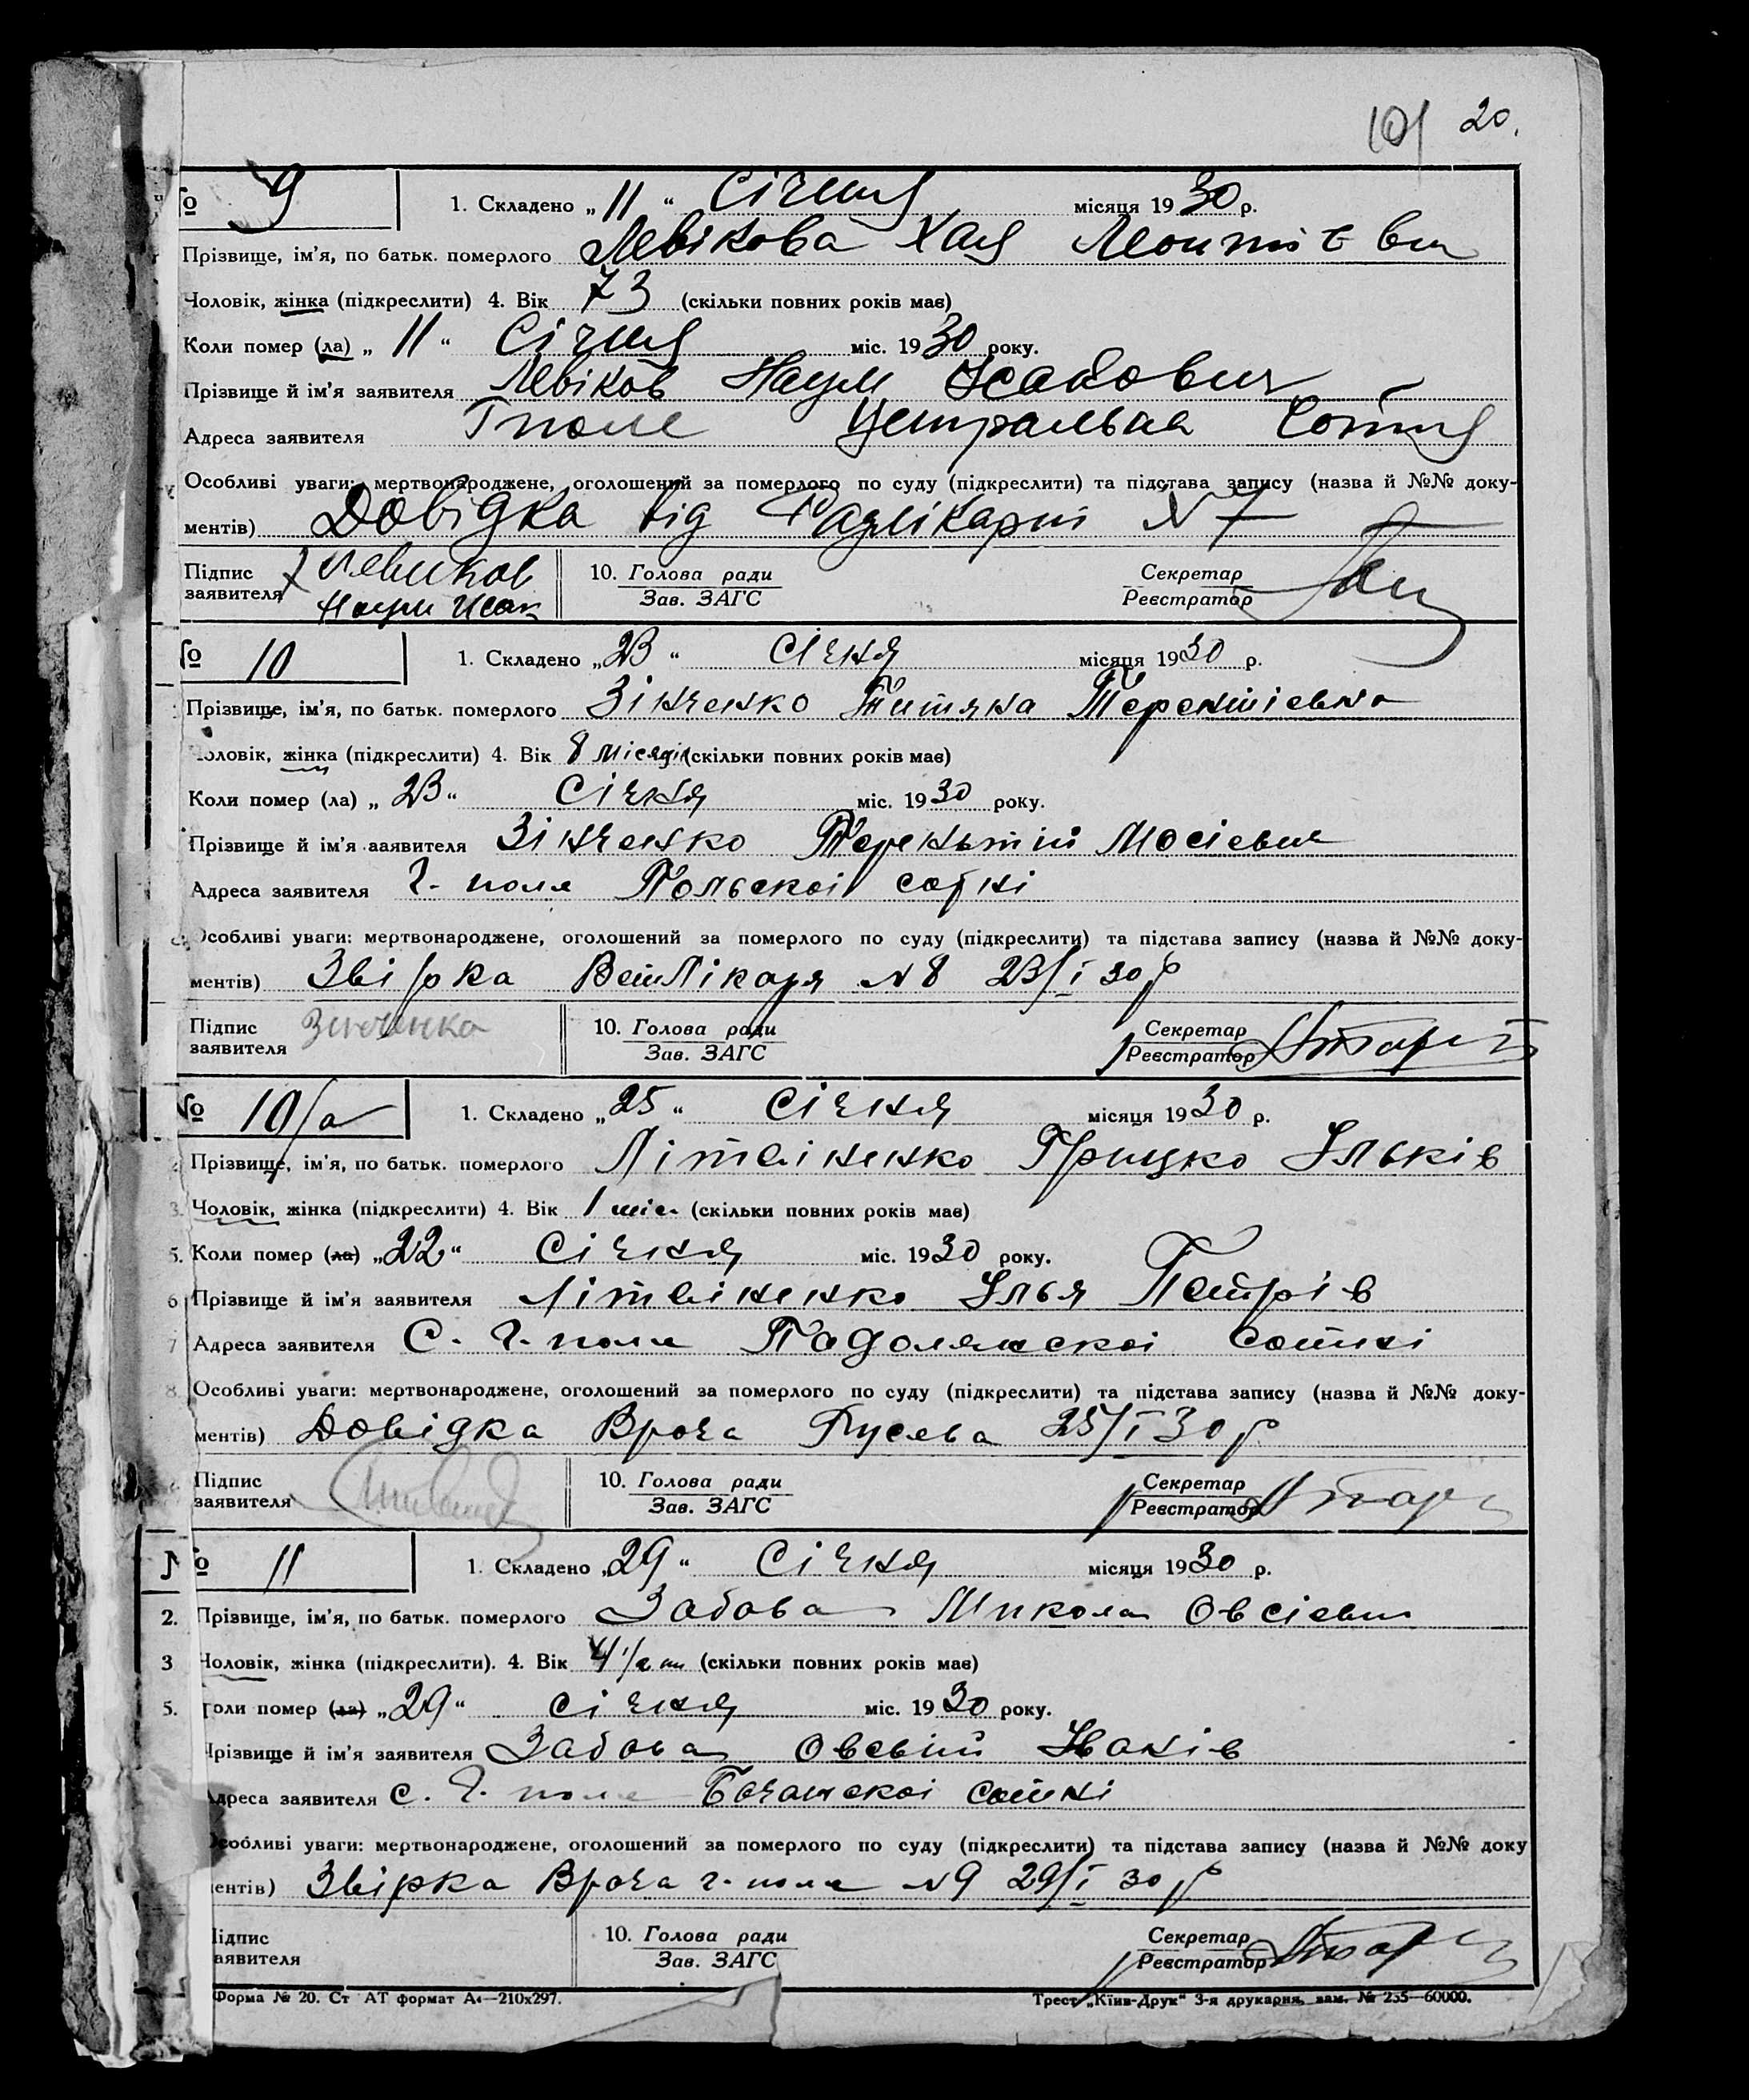 101 20.
№ 9 1. Складено „11“ Січня місяця 1930 р.
Прізвище, ім'я, по батьк. померлого Левікова Хая
Чоловік, жінка (підкреслити) 4. Вік 73 (скільки повних років має)
Коли помер (ла) „11“ Січня міс. 1930 року.
Прізвище й ім'я заявителя Левіков Наум Ісакович
Адреса заявителя Гполе Центральна Сотня
Особливі уваги: мертвонароджене, оголошений за померлого по суду (підкреслити) та підстава запису (назва й №№ доку-
ментів) Довідка від Райлікарні N 7
Підпис Левиков 10. Голова ради Секретар
заявителя Наум Исак Зав. ЗАГС Реєстратор
№ 10 1. Складено „23“ Січня місяця 1930 р.
Прізвище, ім'я, по батьк. померлого Зінченко Титяна Терентіевна
Чоловік, жінка (підкреслити) 4. Вік 8 місяців (скільки повних років має)
Коли помер (ла) „23“ Січня міс. 1930 року.
Прізвище й ім'я заявителя Зінченко Терентьтій Мосіевич
Адреса заявителя Г. поля Польскоі сотні
Особливі уваги: мертвонароджене, оголошений за померлого по суду (підкреслити) та підстава запису (назва й №№ доку-
ментів) Звірка Лікаря N 8 23/I 30 р
Підпис Зинченко 10. Голова ради Секретар
заявителя Зав. ЗАГС Реєстратор
№ 10/а 1. Складено „25“ Січня місяця 1930 р.
Прізвище, ім'я, по батьк. померлого Літвіненко Грицко Ільків
3. Чоловік, жінка (підкреслити) 4. Вік 1 міс. (скільки повних років має)
5. Коли помер (ла) „22“ Січня міс. 1930 року.
6 Прізвище й ім'я заявителя Літвіненко Ілья Петрів
7 Адреса заявителя С. Г. поля Подолянскоі сотні
8. Особливі уваги: мертвонароджене, оголошений за померлого по суду (підкреслити) та підстава запису (назва й №№ доку-
ментів) Довідка Врача Гусева 25/I 30 р
Підпис 10. Голова ради Секретар
заявителя Зав. ЗАГС Реєстратор
№ 11 1. Складено „29“ Січня місяця 1930 р.
2. Прізвище, ім'я, по батьк. померлого Забова Микола Овсіевич
3 Чоловік, жінка (підкреслити). 4. Вік 4 1/2 (скільки повних років має)
5. Коли помер (ла) „29“ січня міс. 1930 року.
Прізвище й ім'я заявителя Забова Овсьій Іванів
Адреса заявителя С. Г. поле сотні
Особливі уваги: мертвонароджене, оголошений за померлого по суду (підкреслити) та підстава запису (назва й №№ доку
ментів) Звірка Врача г. поля N 9 29/I 30 р
Підпис 10. Голова ради Секретар
заявителя Зав. ЗАГС Реєстратор
Форма № 20. Ст АТ формат А4—210х297. Трест „Київ-Друк“ 3-я друкарня, зам. № 255—60000.